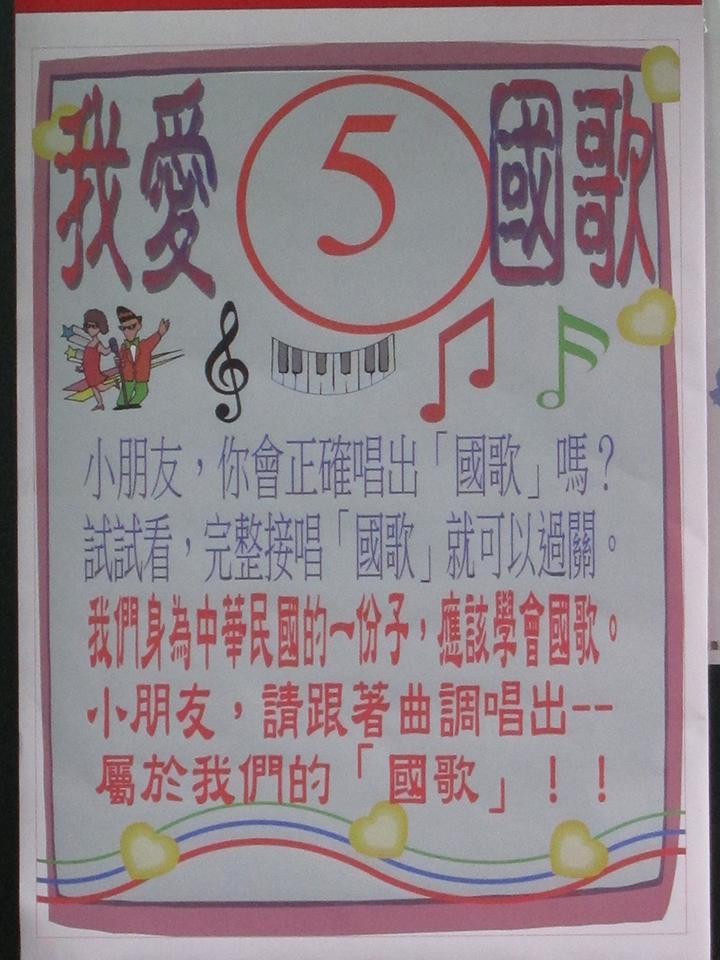 我愛 5 國歌
小朋友，你會正確唱出「國歌」嗎？
試試看，完整接唱「國歌」就可以過關。
我們身為中華民國的一份子，應該學會國歌。
小朋友，請跟著曲調唱出--
屬於我們的「國歌」！！